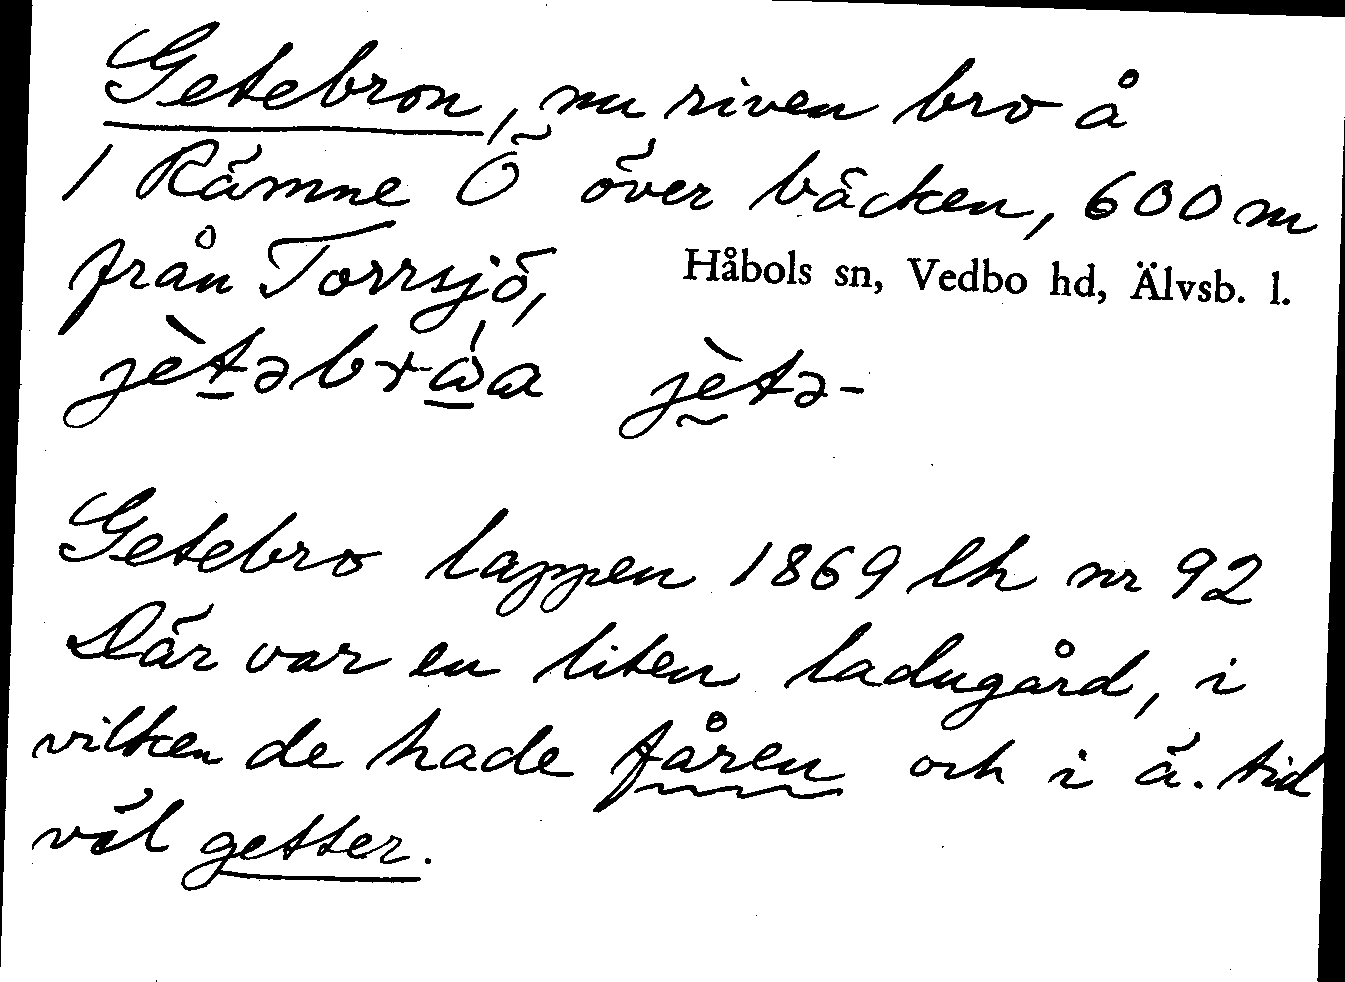 Getebron, nu riven bro å
1 Rämne Ö över bäcken, 600 m
från Torrsjö,
Håbols sn, Vedbo hd, Älvsb. l.
jètəbrὼa jètə-
Getebro lappen 1869 lh nr 92
Där var en liten ladugård, i
vilken de hade fåren och i ä. tid
väl getter.